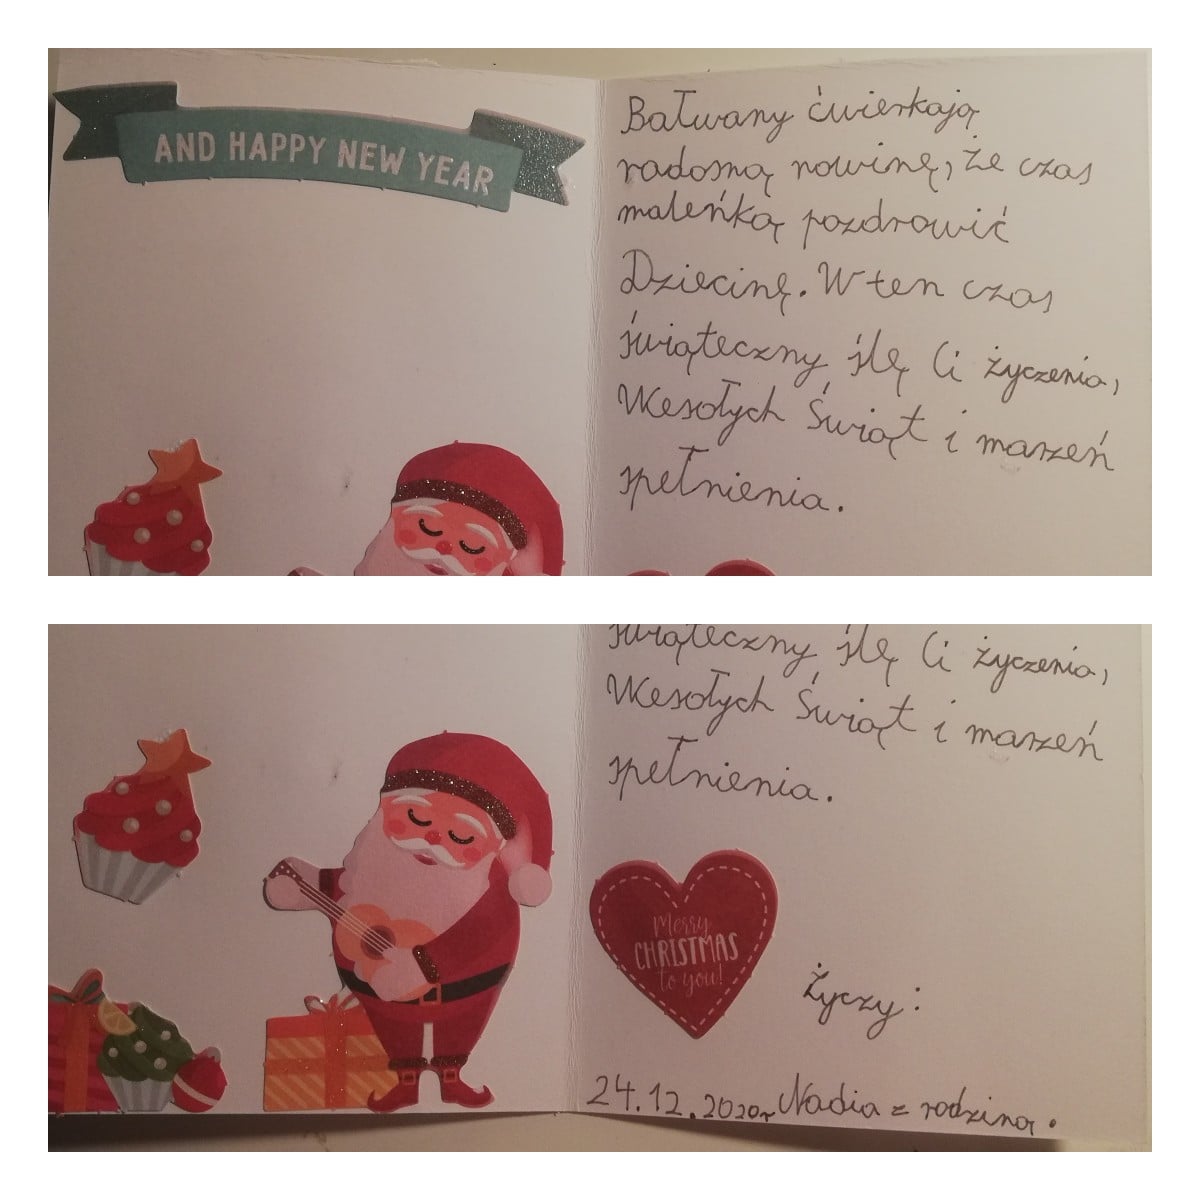 AND HAPPY NEW YEAR
Bałwany ćwierkają
radosną nowinę, że czas
maleńką pozdrowić
Dziecinę. W ten czas
świąteczny ślę Ci życzenia,
Wesołych Świąt i marzeń
spełnienia.
świąteczny ślę Ci życzenia,
Wesołych Świąt i marzeń
spełnienia.
Merry
CHRISTMAS
to you!
Życzy:
24.12.2020r Nadia z rodziną.